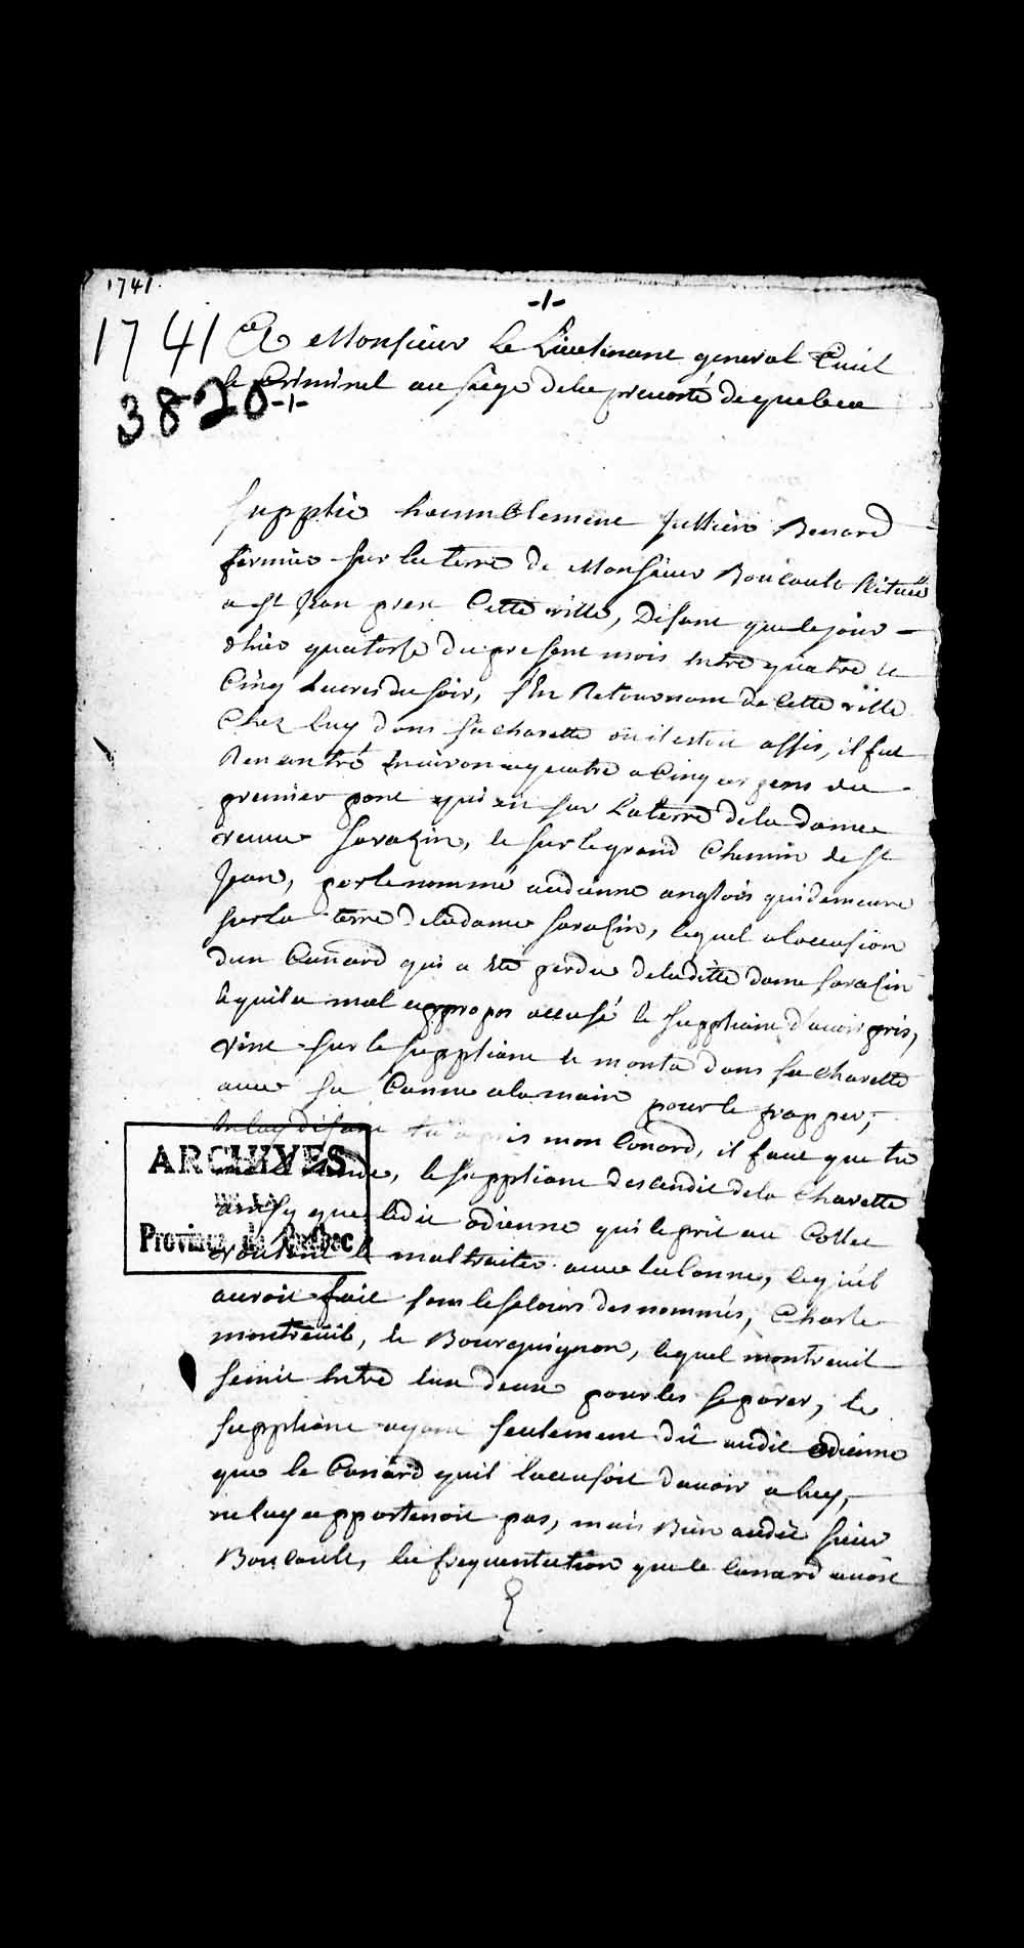 1741
-1-
1741
3820-1-
A Monsieur Le Lieutenant general Civil
et Criminel au siege dela prevosté de quebec
Supplie humblement Jullien Benard
fermier sur la terre de Monsieur Boucault scituée
a st Jean prest Cette ville, Disant que le jour
dhier quatorse du present mois entre quatre et
Cinq heures du soir, s'En Retournant de Cette ville
Chez luy dans sa charette ou il estoit assis, il fut
Rencontré Environ a quatre a Cinq arpens du
premier pont qui est sur La terre de la dame
veuve Sarazin, et sur le grand Chemin de st
Jean, par le nommé audienne anglois qui demeure
sur la terre deladame sarazin, lequel aloccasion
dun Cannard qui a esté perdu deladitte dame sarazin
et quil a mal appropos accusé le suppliant d'avoir pris,
vint sur le suppliant et monta dans sa charette
avec sa Canne alamain pour le frapper,
En luy disant tu a pris mon Canard, il faut que tu
le suppliant descendit dela Charette
ainsy que ledit odienne qui le prit au Collet
voulant le maltraiter avec la Canne, ce quil
auroit fait sans le secours des nommés, Charle
montreuil, et Bourguignon, lequel montreuil
se mit Entre Eux deux pour les separer, le
suppliant ayant seulement dit audit odienne
que le Canard quil laccusoit davoir a luy,
ne luy appartenoit pas, mais Bien audit sieur
Boucault, la frequentation que le Canard avoit